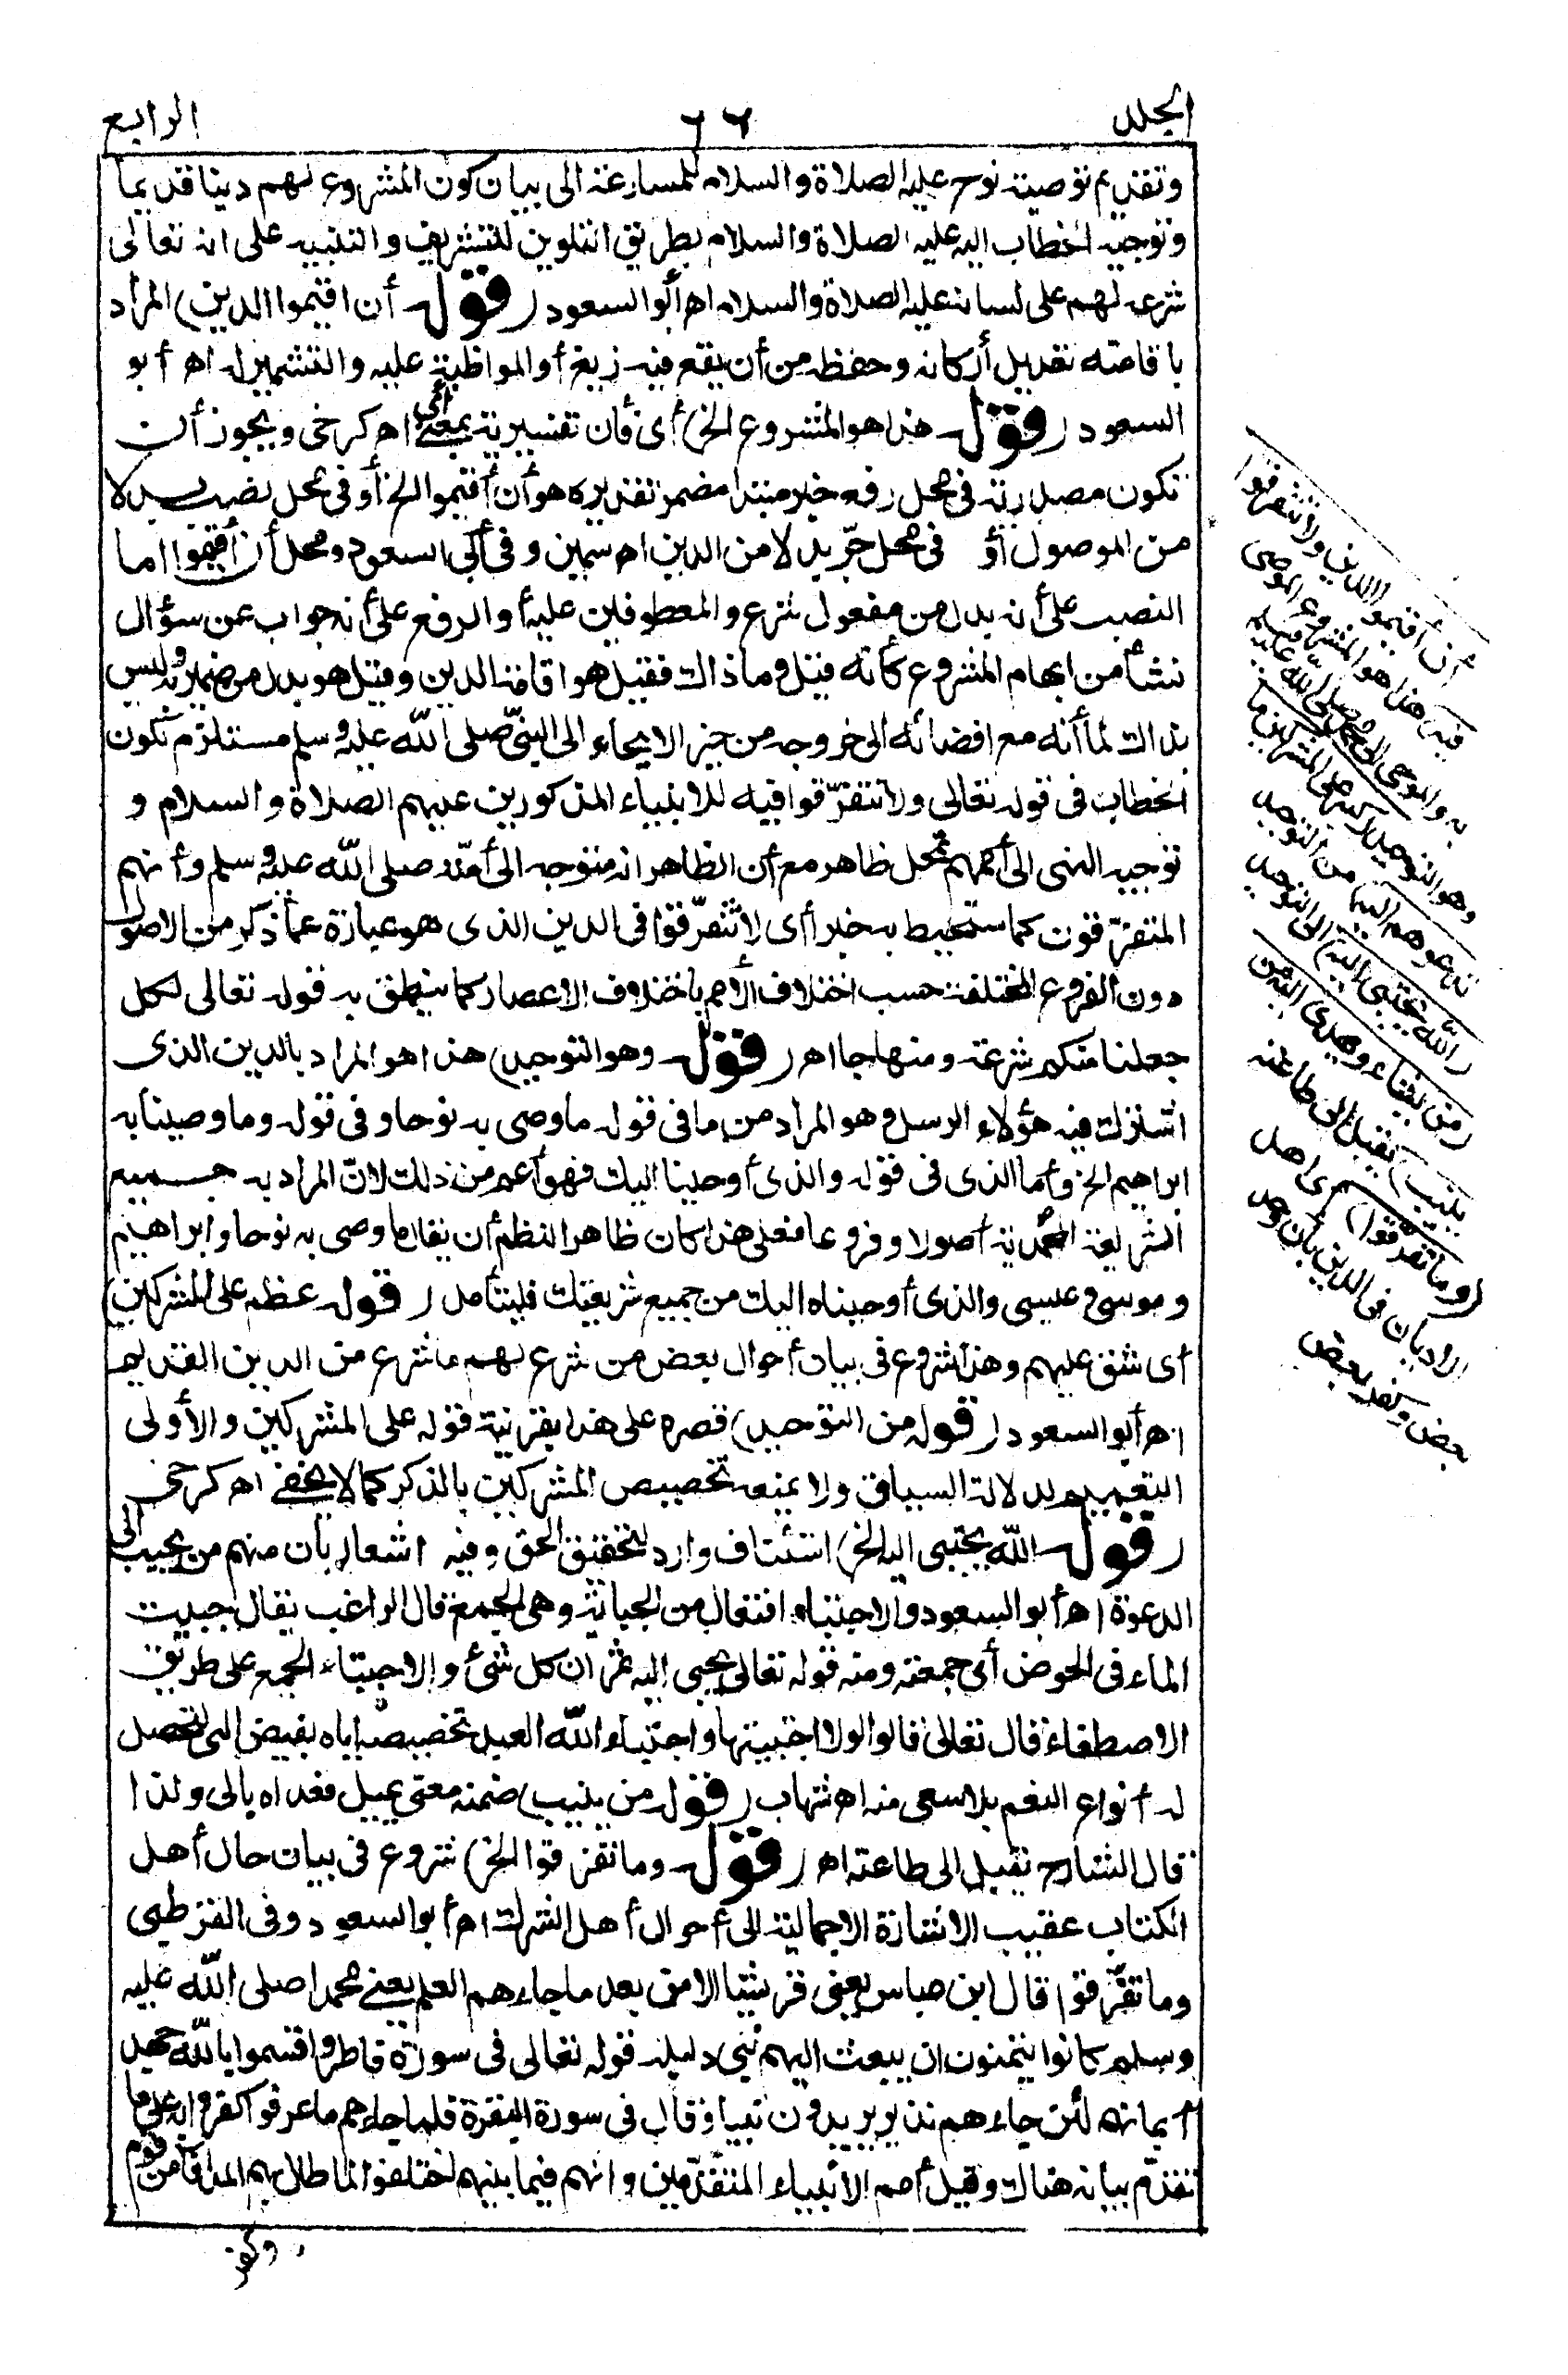 الجلد ٦٦ الرابع
وتقديم توصية نوح عليه الصلاة والسلام للمسارعة الى بيان كون المشروع لهم دينا قديما
وتوجيه الخطاب اليه عليه الصلاة والسلام بطريق التلوين للتشريف والتنبيه على انه تعالى
شرعه لهم على لسانه عليه الصلاة والسلام اه أبو السعود (قوله أن اقيموا الدين) المراد
باقامته تعديل أركانه وحفظه من أن يقع فيه زيغ أو المواظبة عليه والتشمير له اه أبو
السعود (قوله هذا هو المشروع الخ) أى فأن تفسيرية بمعنى أى اه كرخى ويجوز أن
تكون مصدرية فى محل رفع خبر مبتدا مضمر تقديره هو أن أقيموا الخ أو فى محل نصب بدلا
من الموصول أو فى محل جرّ بدلا من الدين اه سمين وفى أبى السعود ومحل أن أقيموا اما
النصب على أنه بدل من مفعول شرع والمعطوفين عليه أو الرفع على أنه جواب عن سؤال
نشأ من ابهام المشروع كأنه قيل وما ذاك فقيل هو اقامة الدين وقيل هو بدل من ضمير به وليس
بذاك لما أنه مع افضائه الى خروجه من حيز الايحاء الى النبىّ صلى الله عليه وسلم مستلزم لكون
الخطاب فى قوله تعالى ولا تتفرّقوا فيه للانبياء المذكورين عليهم الصلاة والسلام و
توجيه النهى الى أممهم تمحل ظاهر مع أن الظاهر انه متوجه الى أمّته صلى الله عليه وسلم وأنهم
المتفرّقون كما ستحيط به خبرا أى لا تتفرّقوا فى الدين الذى هو عبارة عما ذكر من الاصول
دون الفروع المختلفة حسب اختلاف الأمم باختلاف الاعصار كما ينطق به قوله تعالى لكل
جعلنا منكم شرعة ومنهاجا اه (قوله وهو التوحيد) هذا هو المراد بالدين الذى
اشترك فيه هؤلاء الرسل وهو المراد من ما فى قوله ما وصى به نوحا وفى قوله وما وصينا به
ابراهيم الخ وأما الذى فى قوله والذى أوحينا اليك فهو أعم من ذلك لانّ المراد به جميع
الشريعة المحمدية أصولا وفروعا فعلى هذا كان ظاهر النظم أن يقال ما وصى به نوحا وابراهيم
وموسى وعيسى والذى أوحيناه اليك من جميع شريعتك فليتأمل (قوله عظم على المشركين)
أى شق عليهم وهذا شروع فى بيان أحوال بعض من شرع لهم ما شرع من الدين القديم
اه أبو السعود (قوله من التوحيد) قصره على هذا بقرينة قوله على المشركين والأولى
التعميم لدلالة السياق ولا يمنعه تخصيص المشركين بالذكر كما لا يخفى اه كرخى
(قوله الله يجتبى اليه الخ) استئناف وارد لتحقيق الحق وفيه اشعار بأن منهم من يجيب الى
الدعوة اه أبو السعود والاجتباء افتعال من الجباية وهى الجمع قال الراغب يقال جبيت
الماء فى الحوض أى جمعته ومنه قوله تعالى يجبى إليه ثمرات كل شئ والاجتباء الجمع على طريق
الاصطفاء قال تعالى قالوا لولا اجتبيتها واجتباء الله العبد تخصيصه اياه بفيض الهى لتحصل
له أنواع النعم بلا سعى منه اه شهاب (قوله من ينيب) ضمنه معنى يميل فعداه بالى ولذا
قال الشارح يقبل الى طاعته اه (قوله وما تفرقوا الخ) شروع فى بيان حال أهل
الكتاب عقيب الاشارة الاجمالية الى أحوال أهل الشرك اه أبو السعود وفى القرطبى
وما تفرّقوا قال ابن عباس يعنى قريشا الا من بعد ما جاءهم العلم يعنى محمدا صلى الله عليه
وسلم كانوا يتمنون ان يبعث اليهم نبى دليله قوله تعالى فى سورة فاطر واقسموا بالله جهد
أيمانهم لئن جاءهم نذير يريدون نبيا وقال فى سورة البقرة فلما جاءهم ما عرفوا كفروا به على ما
تقدّم بيانه هناك وقيل أمم الأنبياء المتقدّمين وانهم فيما بينهم اختلفوا لما طال بهم المدا فآمن قوم
وكفر
أن أقيموا الدين ولا تتفرقوا
فيه) هذا هو المشروع الموصى
به والموحى الى محمد صلى الله عليه وسلم
وهو التوحيد (كبر على المشركين ما
تدعوهم اليه) من التوحيد
(الله يجتبى اليه) الى التوحيد
(من يشاء ويهدى اليه من
ينيب) يقبل الى طاعته
(وما تفرقوا) أى اهل
الاديان فى الدين بأن وحد
بعض وكفر بعض